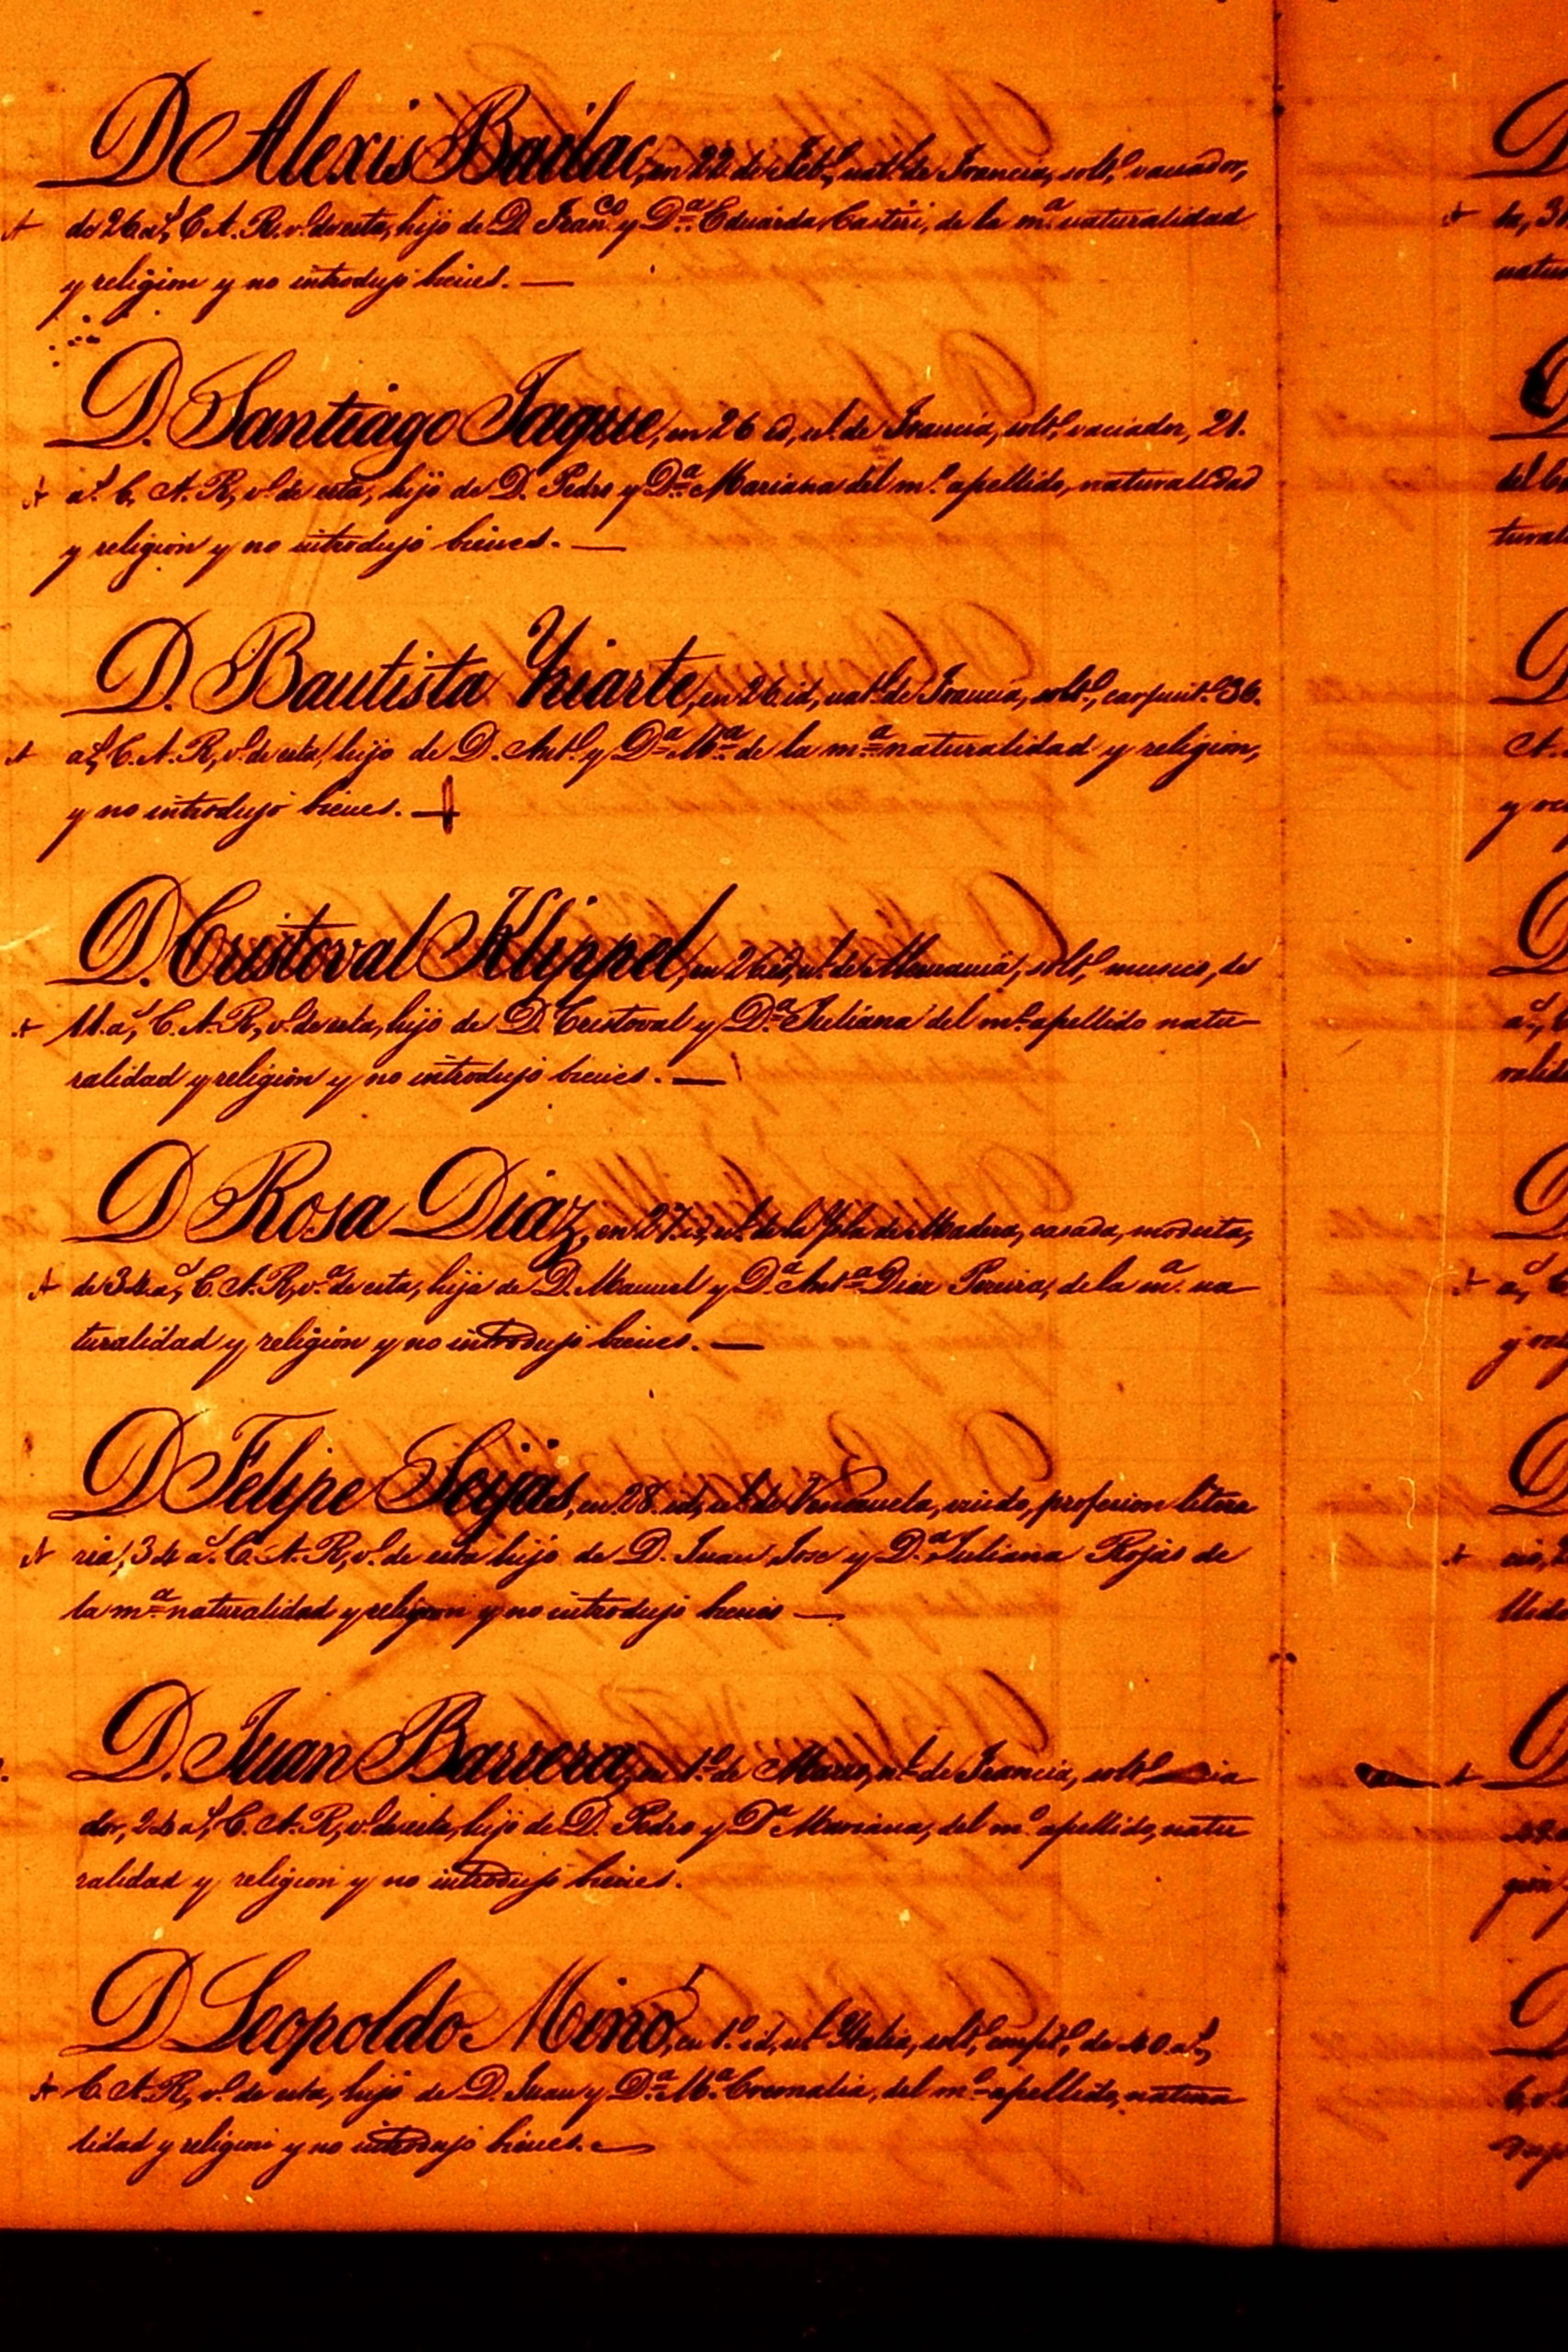 D Alexis Bailac, en 22 de Feb.º, nat.l de Francia, solt.º, vaciador,
de 26 a.s, C. A. R. v.º de esta, hijo de D. Fran.co y D.ª Eduarda Casteri, de la m.ª naturalidad
y religion y no introdujo bienes. —
D. Santiago Jaque, en 26 id, nl. de Francia, solt.º, vaciador, 21.
a.s C. A. R, v.º de esta, hijo de D. Pedro y D.ª Mariana del m.º apellido, naturalidad
y religion y no introdujo bienes. —
D. Bautista Yriarte, en 26 id, nat.l de Francia, solt.º, carpint.º 36.
a.s, C. A. R, v.º de esta, hijo de D. Ant.º y D.ª M.ª de la m.ª naturalidad y religion,
y no introdujo bienes. —
D. Cristoval Klippel, en 26 id, nl. de Alemania, solt.º musico, de
11. a.s, C. A. R, v.º de esta, hijo de D. Cristoval y D.ª Juliana del m.º apellido natu-
ralidad y religion y no introdujo bienes. —
D Rosa Diaz, en 27. id, nl. de la Ysla de Madera, casada, modista,
de 34. a.s, C. A. R, v.ª de esta, hija de D. Manuel y D.ª Ant.ª Diaz Pereira, de la m.ª na-
turalidad y religion y no introdujo bienes. —
D Felipe Seijas, en 28. id, nl. de Venezuela, viudo, profesion litera
ria, 34 a.s C. A. R, v.º de esta hijo de D. Juan Jose y D.ª Juliana Rojas de
la m.ª naturalidad y religion y no introdujo bienes —
D. Juan Barrera, en 1.º de Marzo, nl. de Francia, solt.º
dor, 24 a.s, C. A. R, v.º de esta, hijo de D. Pedro y D.ª Mariana, del m.º apellido, natu
ralidad y religion y no introdujo bienes.
D Leopoldo Minó, en 1.º id, nl. Ytalia, solt.º, emp.do, de 40 a.s,
C. A. R, v.º de esta, hijo de D. Juan y D.ª M.ª del m.º apellido, natura
lidad y religion y no introdujo bienes. —